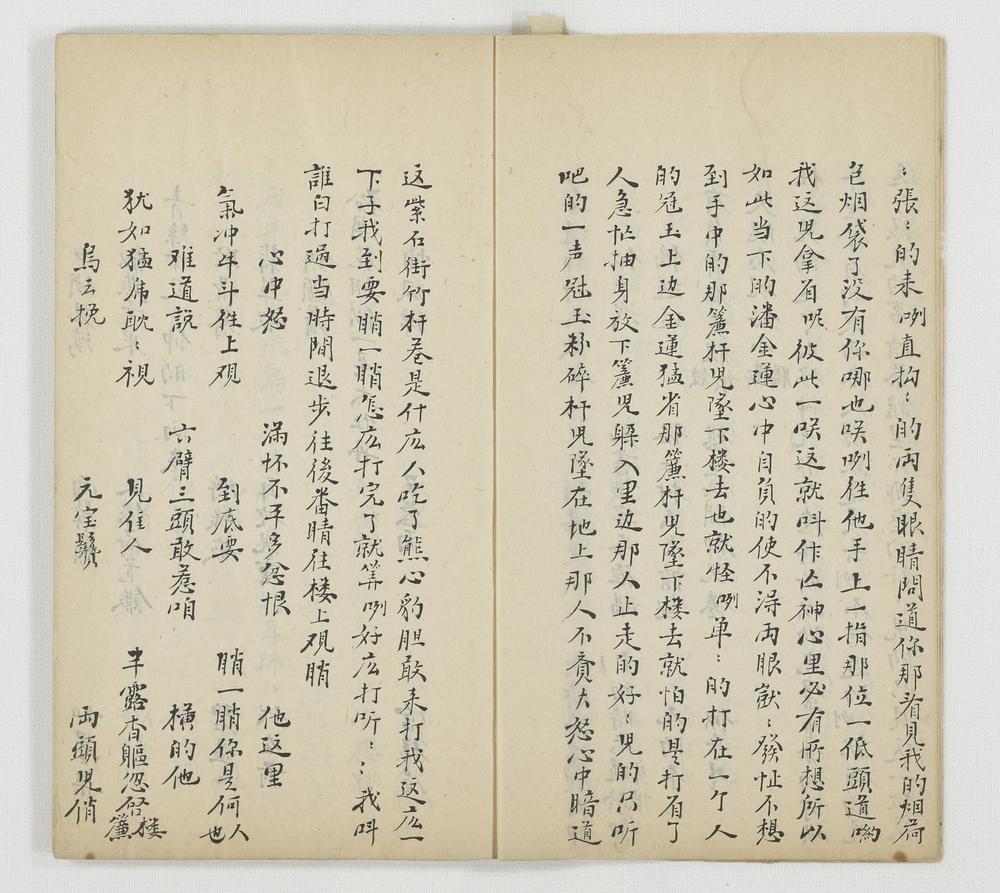 ：張：的来咧直抅：的両隻眼睛問道你那看見我的烟荷
包烟袋了没有你哪也咲咧徃他手上一指那位一低頭道喲
我这児拿着呢彼此一咲这就呌作亾神心里必有所想所以
如此当下的潘金蓮心中自負的使不淂両眼獃：發怔不想
到手中的那簾杆児墜下楼去也就怪咧单：的打在一个人
的冠玉上边金蓮猛省那簾杆児墜下楼去就怕的是打着了
人急忙抽身放下簾児躱入里边那人正走的好：児的只听
吧的一声冠玉粉碎杆児墜在地上那人不賁大怒心中暗道
这紫石街竹杆巷是什庅人吃了熊心豹胆敢来打我这庅一
下子我到要䏴一䏴怎庅打完了就筭咧好庅打听：：我呌
誰白打過当時間退步徃後番睛徃楼上观䏴
心中怒 满怀不平多忿恨 他这里
氣冲牛斗徃上观 到底要 䏴一䏴你是何人也
难道説 六臂三頭敢惹咱 横的他
犹如猛虎耽：視 見佳人 半露香軀忽啓楼簾
烏云挽 元宝鬢 両頭児俏